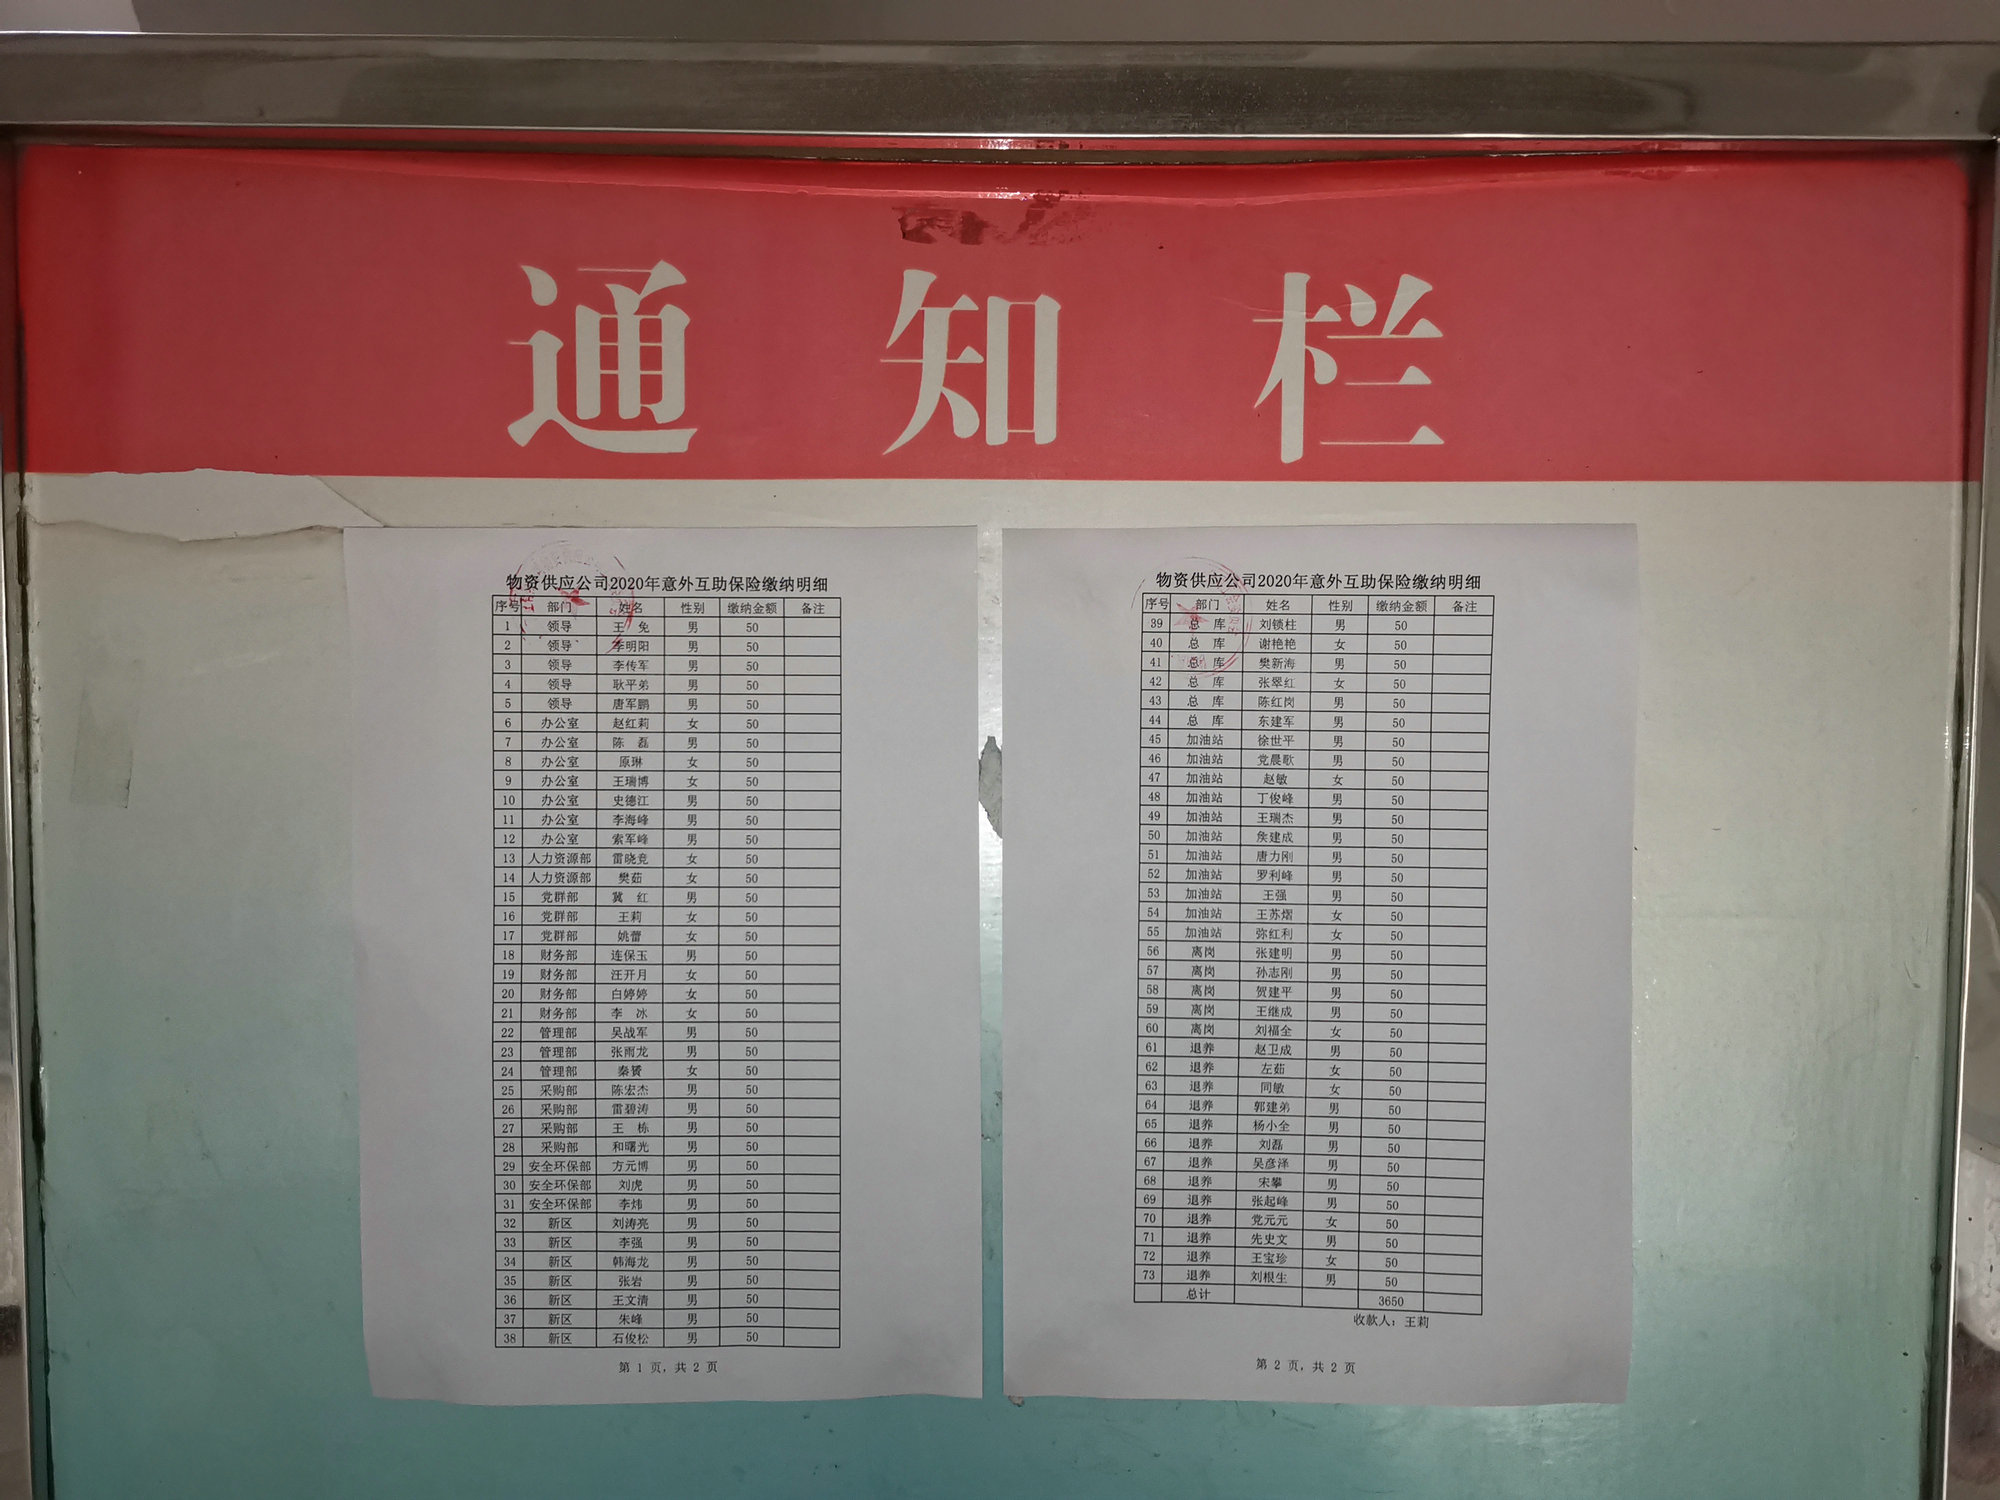 通知栏
物资供应公司2020年意外互助保险缴纳明细
序号 部门 姓名 性别 缴纳金额 备注
1 领导 王 免 男 50
2 领导 李明阳 男 50
3 领导 李传军 男 50
4 领导 耿平弟 男 50
5 领导 唐军鹏 男 50
6 办公室 赵红莉 女 50
7 办公室 陈 磊 男 50
8 办公室 原琳 女 50
9 办公室 王瑞博 女 50
10 办公室 史德江 男 50
11 办公室 李海峰 男 50
12 办公室 索军峰 男 50
13 人力资源部 雷晓竞 女 50
14 人力资源部 樊茹 女 50
15 党群部 冀 红 男 50
16 党群部 王莉 女 50
17 党群部 姚蕾 女 50
18 财务部 连保玉 男 50
19 财务部 汪开月 女 50
20 财务部 白婷婷 女 50
21 财务部 李 冰 女 50
22 管理部 吴战军 男 50
23 管理部 张雨龙 男 50
24 管理部 秦赟 女 50
25 采购部 陈宏杰 男 50
26 采购部 雷碧涛 男 50
27 采购部 王 栋 男 50
28 采购部 和曙光 男 50
29 安全环保部 方元博 男 50
30 安全环保部 刘虎 男 50
31 安全环保部 李炜 男 50
32 新区 刘涛亮 男 50
33 新区 李强 男 50
34 新区 韩海龙 男 50
35 新区 张岩 男 50
36 新区 王文清 男 50
37 新区 朱峰 男 50
38 新区 石俊松 男 50
第 1 页，共 2 页
物资供应公司2020年意外互助保险缴纳明细
序号 部门 姓名 性别 缴纳金额 备注
39 总 库 刘锁柱 男 50
40 总 库 谢艳艳 女 50
41 总 库 樊新海 男 50
42 总 库 张翠红 女 50
43 总 库 陈红岗 男 50
44 总 库 东建军 男 50
45 加油站 徐世平 男 50
46 加油站 党晨歌 男 50
47 加油站 赵敏 女 50
48 加油站 丁俊峰 男 50
49 加油站 王瑞杰 男 50
50 加油站 侯建成 男 50
51 加油站 唐力刚 男 50
52 加油站 罗利峰 男 50
53 加油站 王强 男 50
54 加油站 王苏熠 女 50
55 加油站 弥红利 女 50
56 离岗 张建明 男 50
57 离岗 孙志刚 男 50
58 离岗 贺建平 男 50
59 离岗 王继成 男 50
60 离岗 刘福全 女 50
61 退养 赵卫成 男 50
62 退养 左茹 女 50
63 退养 同敏 女 50
64 退养 郭建弟 男 50
65 退养 杨小全 男 50
66 退养 刘磊 男 50
67 退养 吴彦泽 男 50
68 退养 宋攀 男 50
69 退养 张起峰 男 50
70 退养 党元元 女 50
71 退养 先史文 男 50
72 退养 王宝珍 女 50
73 退养 刘根生 男 50
总计 3650
收款人：王莉
第 2 页，共 2 页